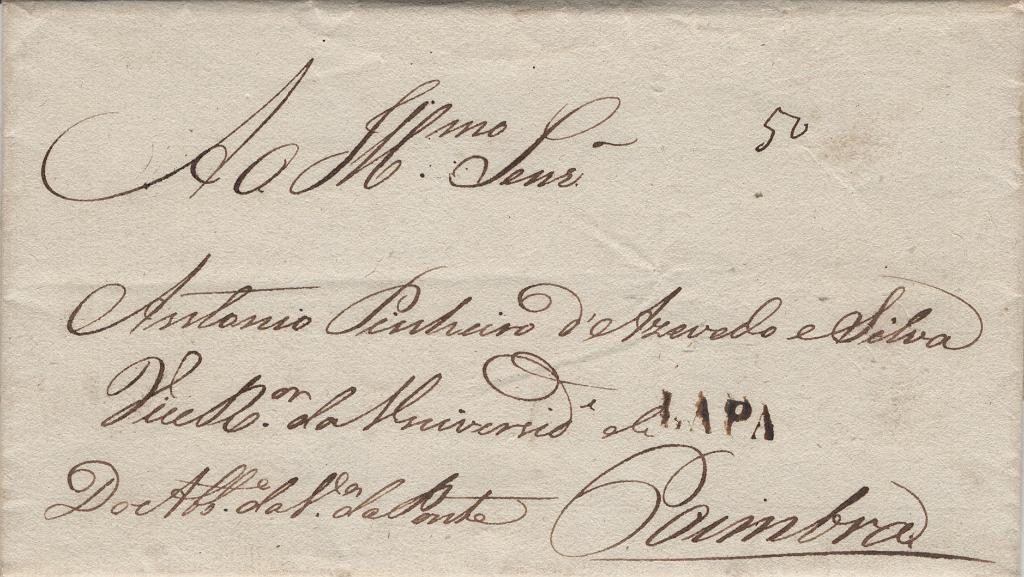 Ao Illmo. Senr. 50
Antonio Pinheiro d'Azevedo e Silva
Vice Ror. da Universide de LAPA
Do Abbe. da Va. da Ponte Coimbra